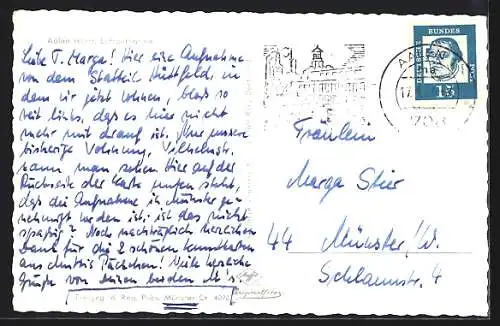 Aalen Württ.
Liebe T. Marga! Hier eine Aufnahme
von dem Stadtteil Hüttfeld, in
dem wir jetzt wohnen, bloß so
weit links, daß es hier nicht
mehr mit drauf ist. Nur unsere
bisherige Wohnung, Wilhelmstr.
kann man sehen. Hier auf der
Rückseite der Karte unten steht,
daß die Aufnahme in Münster ge-
nehmigt worden ist. Ist das nicht
spaßig? Noch nachträglich herzlichen
Dank für die 2 schönen Kunstkarten
aus Päckchen! Viele herzliche
Grüße von Deinen beiden M's.
Freigeg. d. Reg. Präs. Münster Nr. 4070
DEUTSCHE BUNDESPOST
15
AALEN
17.
7083
Fräulein
Marga Stier
44 Münster/W.
Schlaunstr. 4